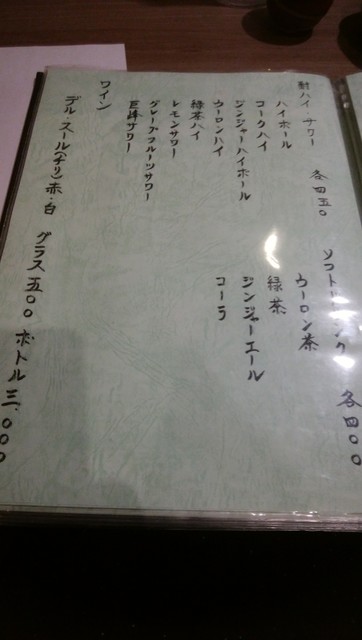 酎ハイ サワー 各四五〇
ハイボール
コークハイ
ジンジャーハイボール
ウーロンハイ
緑茶ハイ
レモンサワー
グレープフルーツサワー
巨峰サワー
ソフトドリンク 各四〇〇
ウーロン茶
緑茶
ジンジャーエール
コーラ
ワイン
デル・スール(チリ)赤・白 グラス五〇〇 ボトル三、〇〇〇